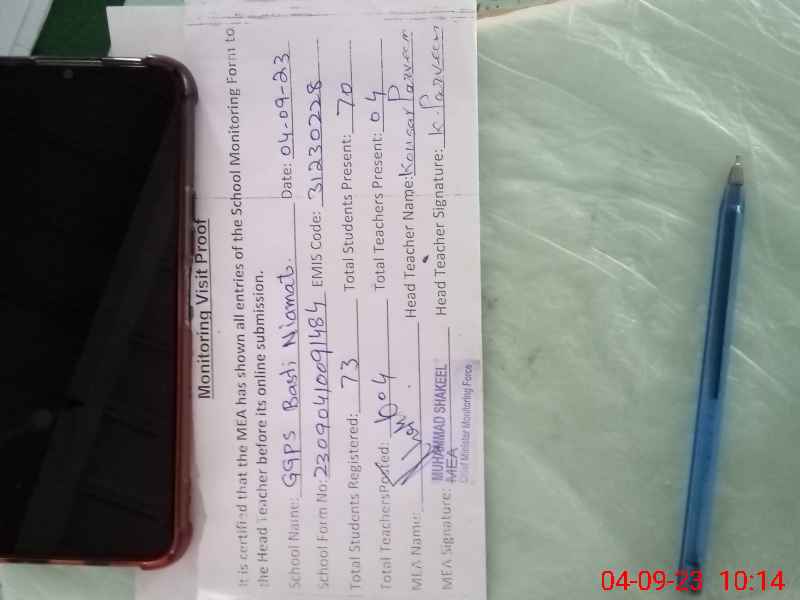 Monitoring Visit Proof
It is certified that the MEA has shown all entries of the School Monitoring Form to
the Head Teacher before its online submission.
School Name: GGPS Basti Niamat. Date: 04-09-23
School Form No: 2309040091484 EMIS Code: 31230228
Total Students Registered: 73 Total Students Present: 70
Total Teachers Posted: 04 Total Teachers Present: 04
MEA Name: Head Teacher Name: Kousar Parveen
MEA Signature: Head Teacher Signature: K. Parveen
MUHAMMAD SHAKEEL
MEA
Chief Minister Monitoring Force
04-09-23 10:14